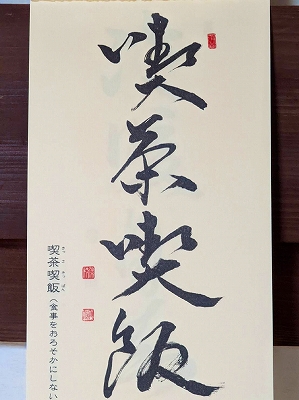 喫茶喫飯
喫茶喫飯(食事をおろそかにしない
きっさきっぱん